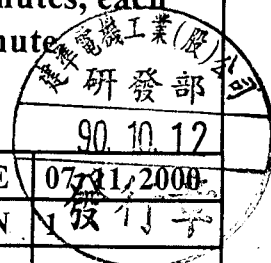 nutes, each
nute
建準電機工業(股)公司
研發部
90. 10. 12
E 07/11/2000
發行章
N 1